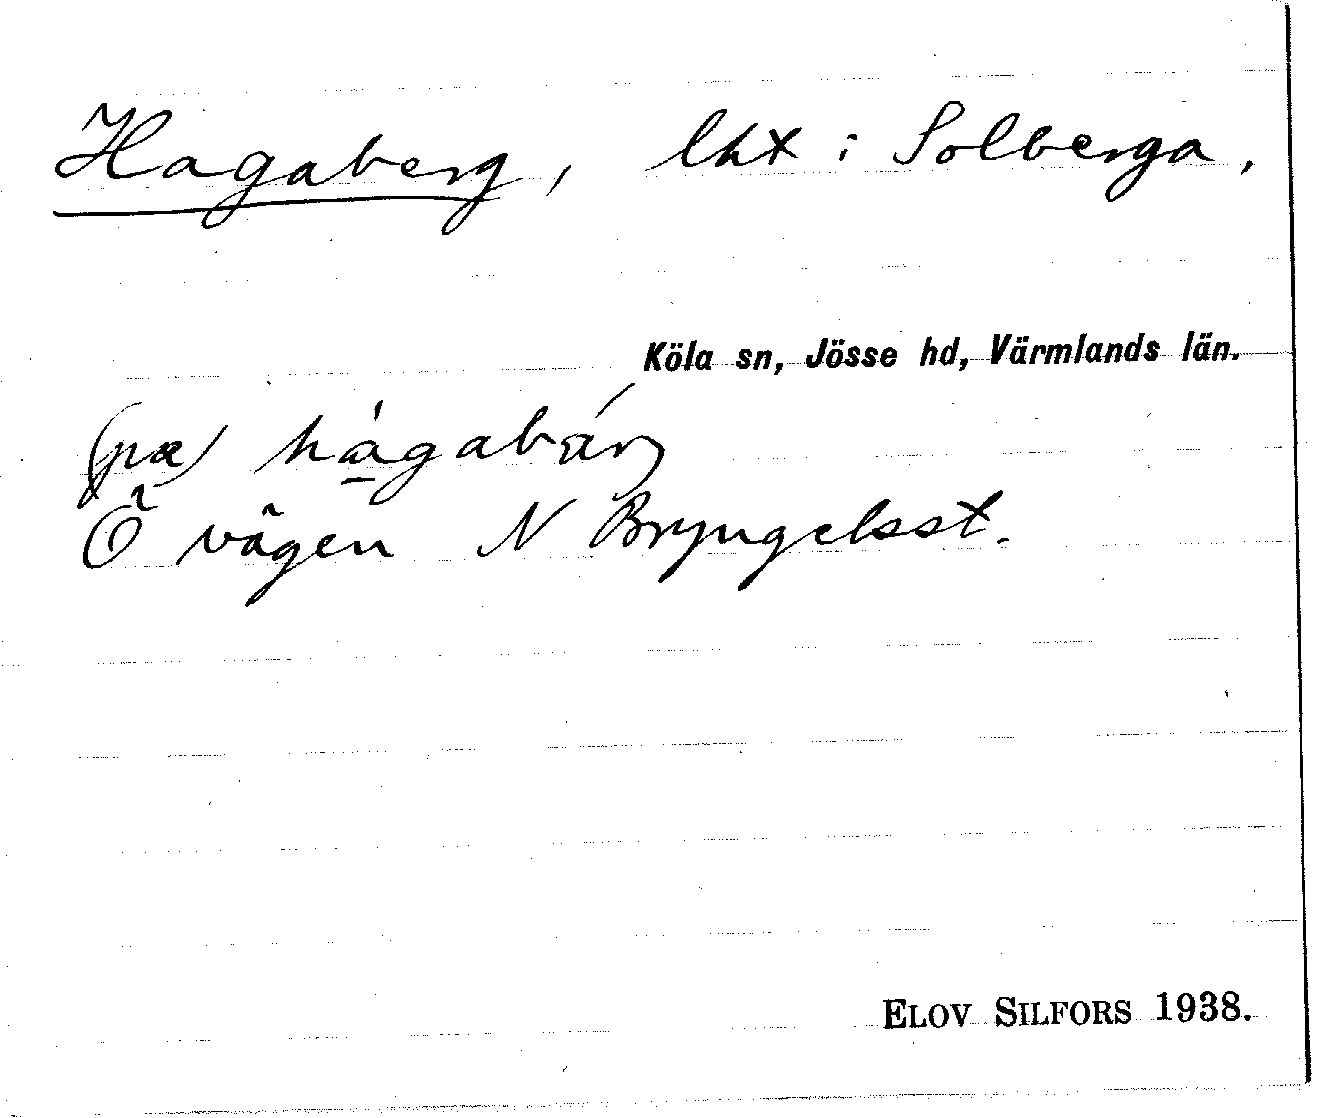 Hagaberg, lht i Solberga,
Köla sn, Jösse hd, Värmlands län.
(pæ) hágabárj
Ö vägen N Bryngelsst.
ELOV SILFORS 1938.